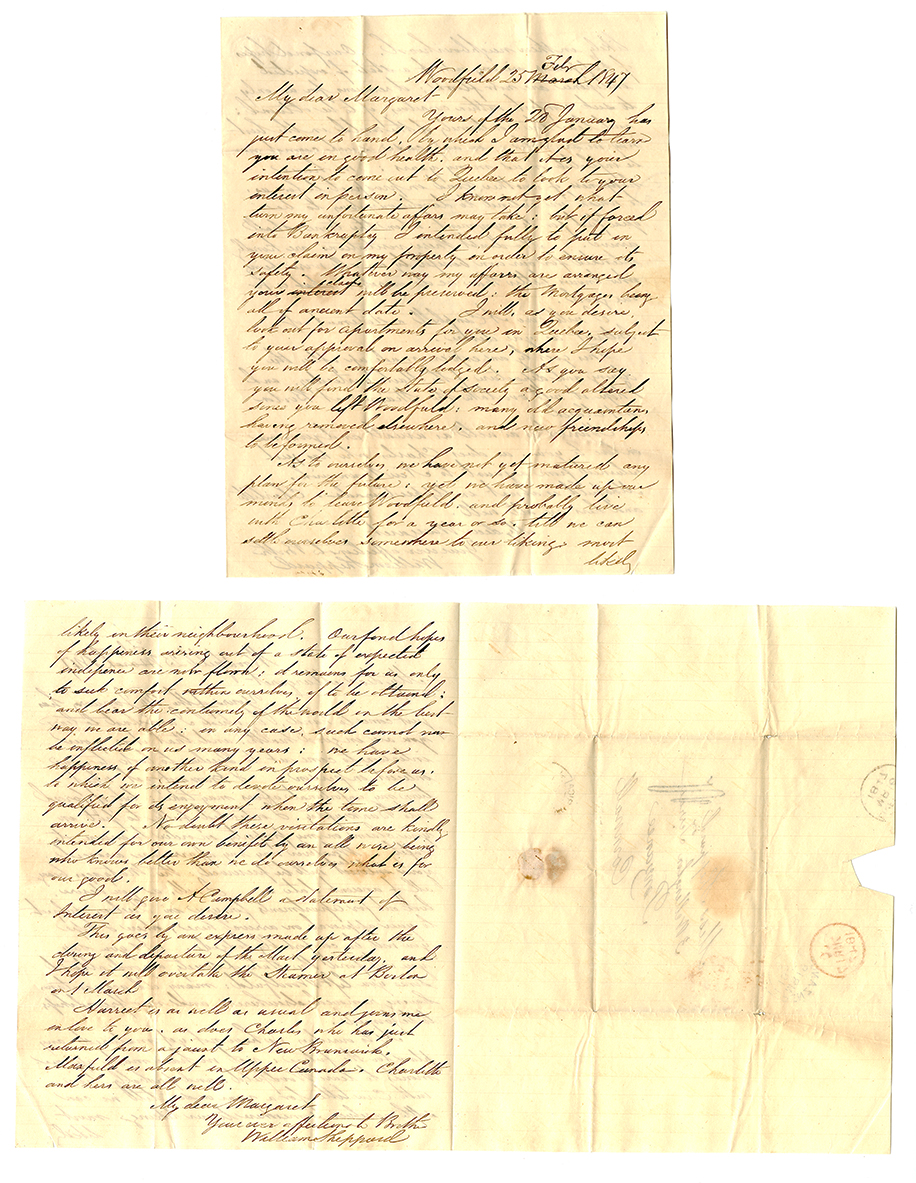 Feby
Woodfield 25 March 1847
My dear Margaret
Yours of the 28 January has
just come to hand, by which I am glad to learn
you are in good health, and that it is your
intention to come out to Quebec to look to your
interest in person. I know not yet what
turn my unfortunate affairs may take; but if forced
into Bankruptcy I intended fully to put in
your claim on my property in order to ensure its
safety. Whatever way my affairs are arranged
claim
your interest will be preserved: the Mortgages being
all of ancient date. I will, as you desire,
look out for apartments for you in Quebec, subject
to your approval on arrival here, where I hope
you will be comfortably lodged. As you say
you will find the State of society a good altered
since you left Woodfield: many old acquaintances
having removed elsewhere, and new friendships
to be formed.
As to ourselves we have not yet matured any
plan for the future: yet we have made up our
minds to leave Woodfield, and probably live
with Charlotte for a year or so, till we can
settle ourselves somewhere to our liking, most
likely
likely in their neighbourhood. Our fond hopes
of happiness arising out of a state of expected
are now flown; it remains for us only
to seek comfort within ourselves, if to be obtained;
and bear the contumely of the world in the best
way we are able: in any case, such cannot now
be inflicted on us many years: we have
happiness of another kind in prospect before us,
to which we intend to devote ourselves to be
qualified for its enjoyment when the time shall
arrive. No doubt these visitations are kindly
intended for our own benefit by an all wise being
who knows better than we do ourselves what is for
our good.
I will give A Campbell a statement of
Interest as you desire.
This goes by an express made up after the
closing and departure of the Mail yesterday, and
I hope it will overtake the Steamer at Boston
on 1 March
Harriet is as well as usual and joins me
in love to you, as does Charles who has just
returned from a jaunt to New Brunswick.
Maxfield is absent in Upper Canada. Charlotte
and hers are all well.
My dear Margaret
Your ever affectionate Brother
William Sheppard